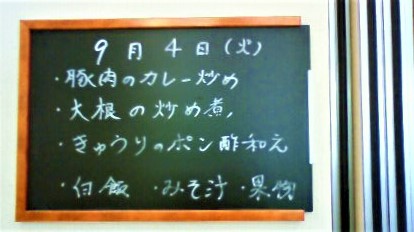 9月4日(火)
・豚肉のカレー炒め
・大根の炒め煮
・きゅうりのポン酢和え
・白飯 ・みそ汁 ・果物